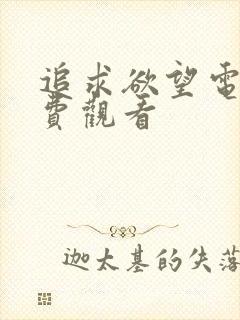 追求欲望電
費觀看
迦太基的失落